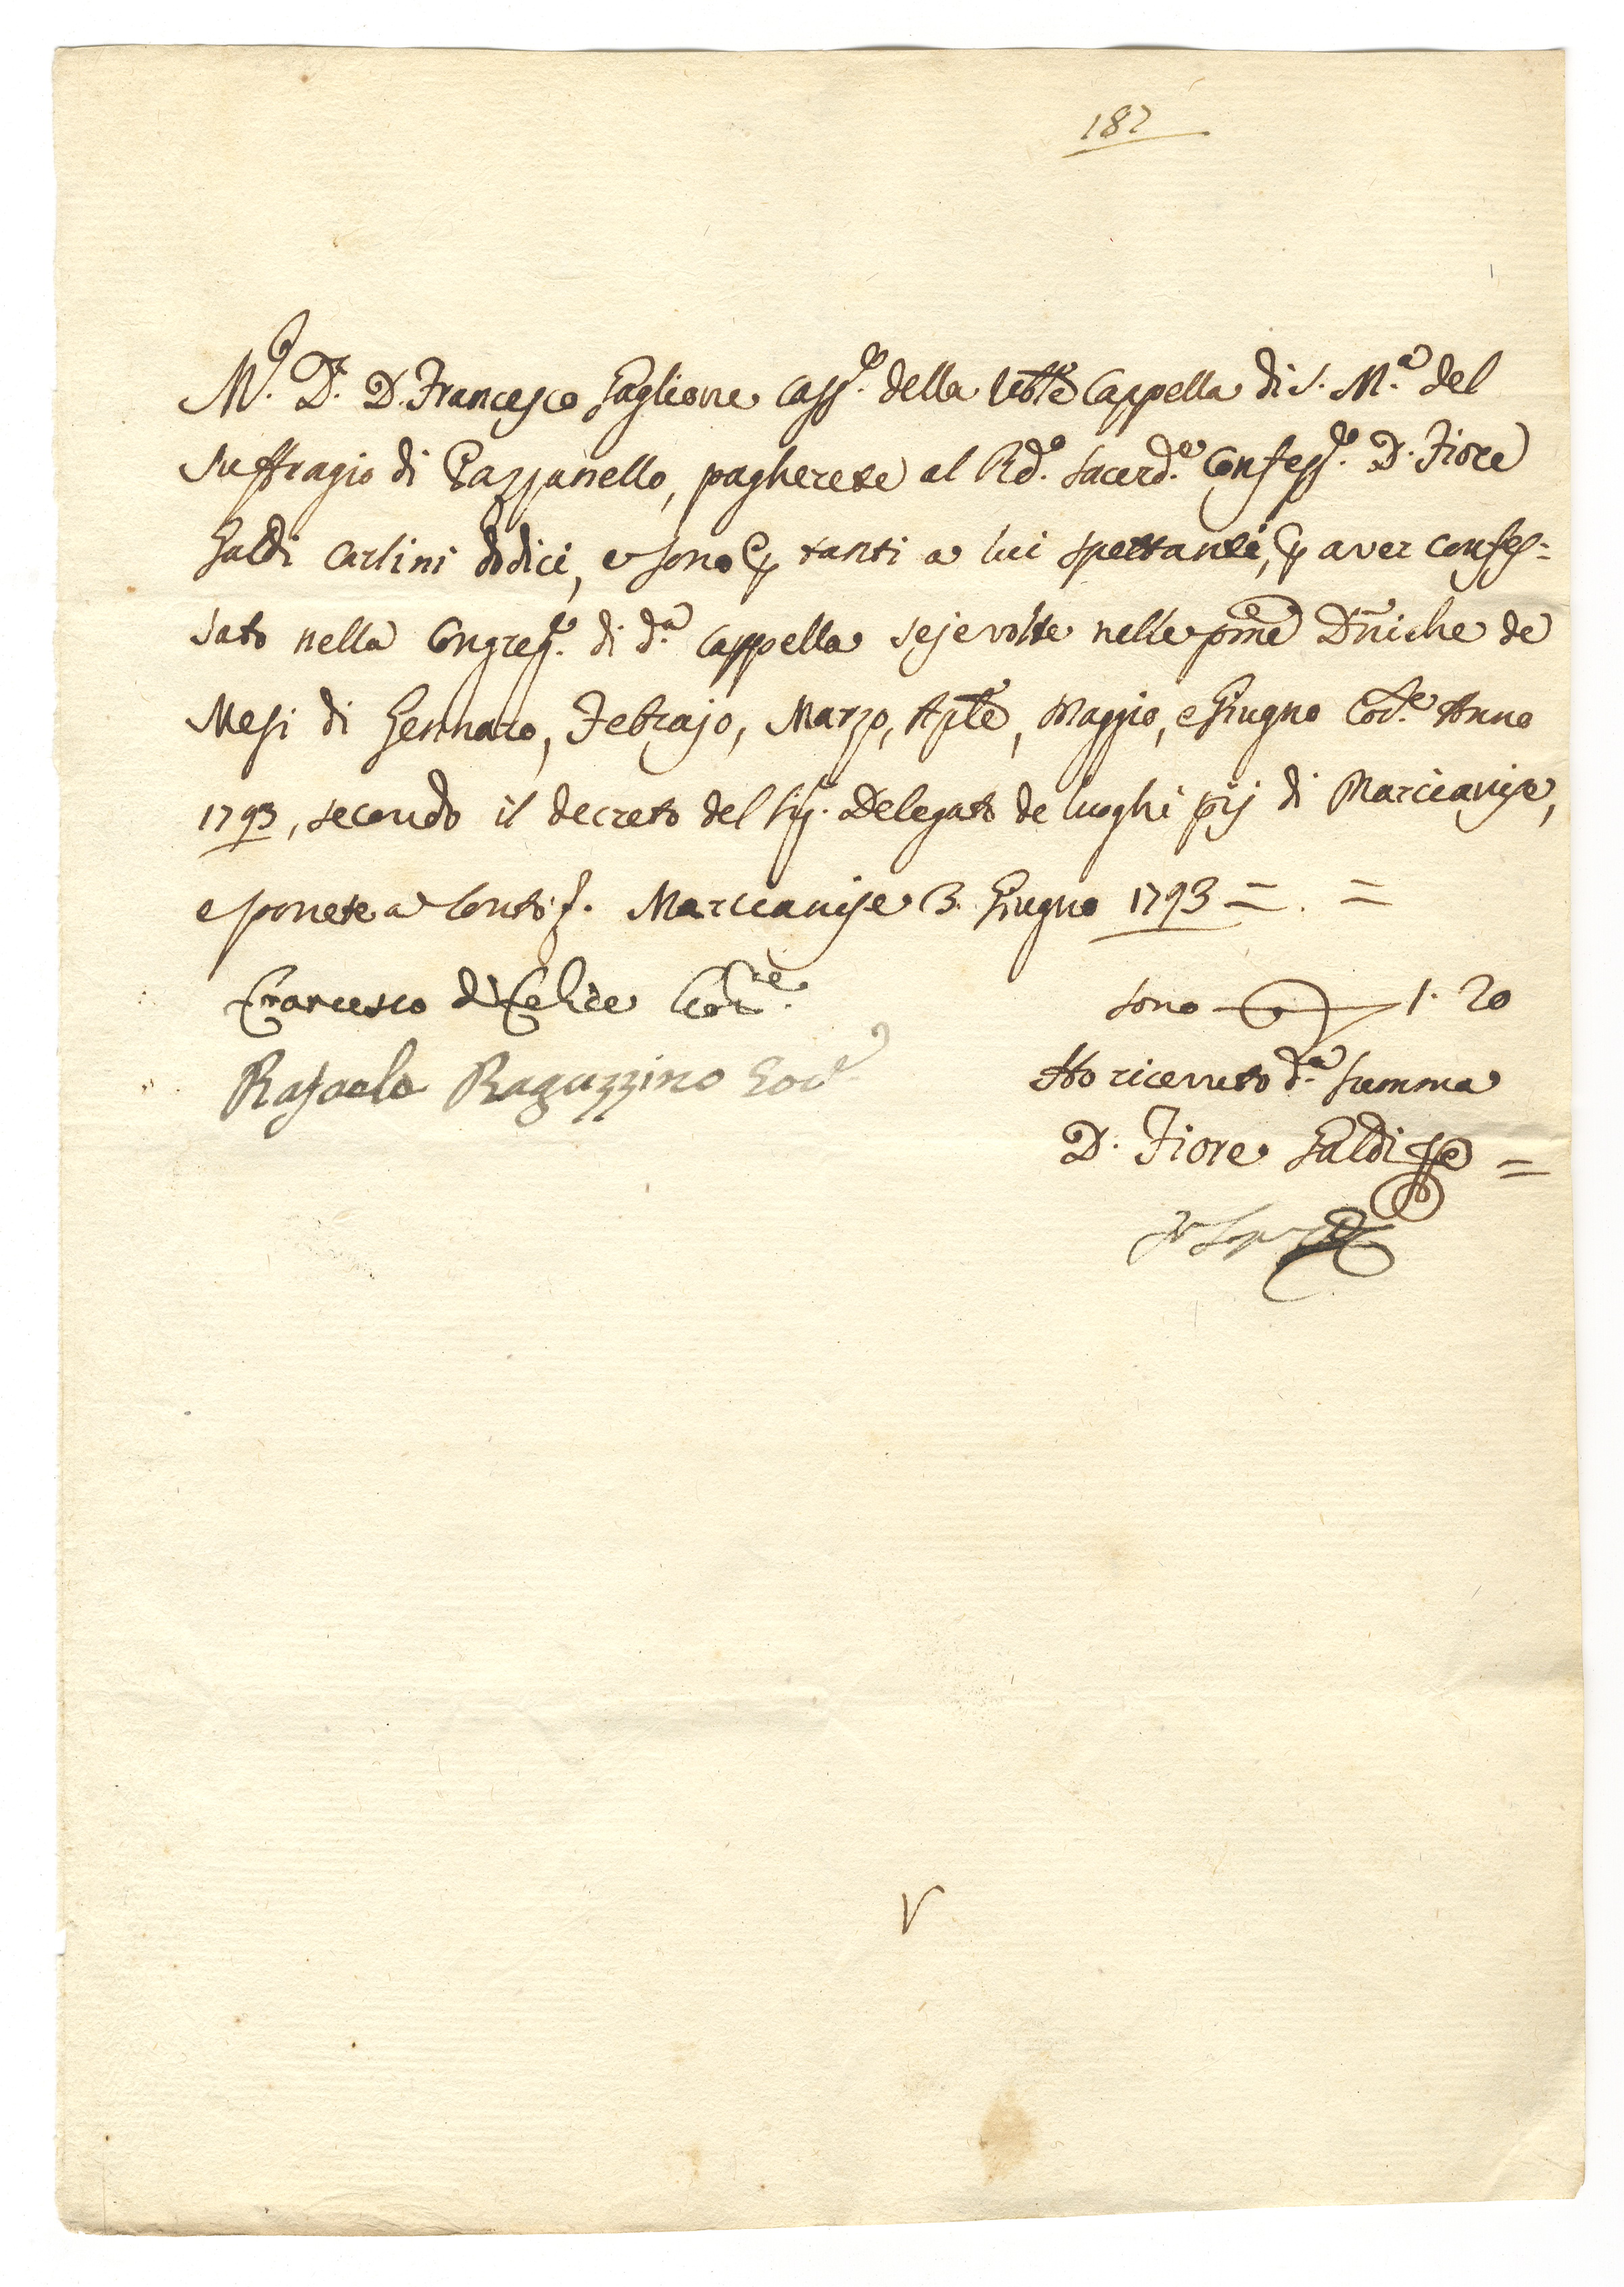 187
M.º D.r D. Francesco Gaglione Cass.e della Ven.le Cappella di S. M.a del
Suffragio di Cazzanello, pagherete al Rd.º Sacerd.e Confess.e D. Fiore
Galdi carlini dodici, e sono p tanti a lui spettanti, p aver confes-
sato nella Congreg.e di d.a Cappella seje volte nelle pme Dñiche de
Mesi di Gennaro, Febrajo, Marzo, Aple, Maggio, e Giugno Cor.e Anno
1793, secondo il decreto del Sig.r Delegato de luoghi pij di Marcianise,
e ponete a conto. Marcianise 3. Giugno 1793 = . =
Francesco di Felice Gov.re
sono 1. 20
Rafaele Raguzzino Gov.e
Ho ricevuto d.a summa
D. Fiore Galdi =
V